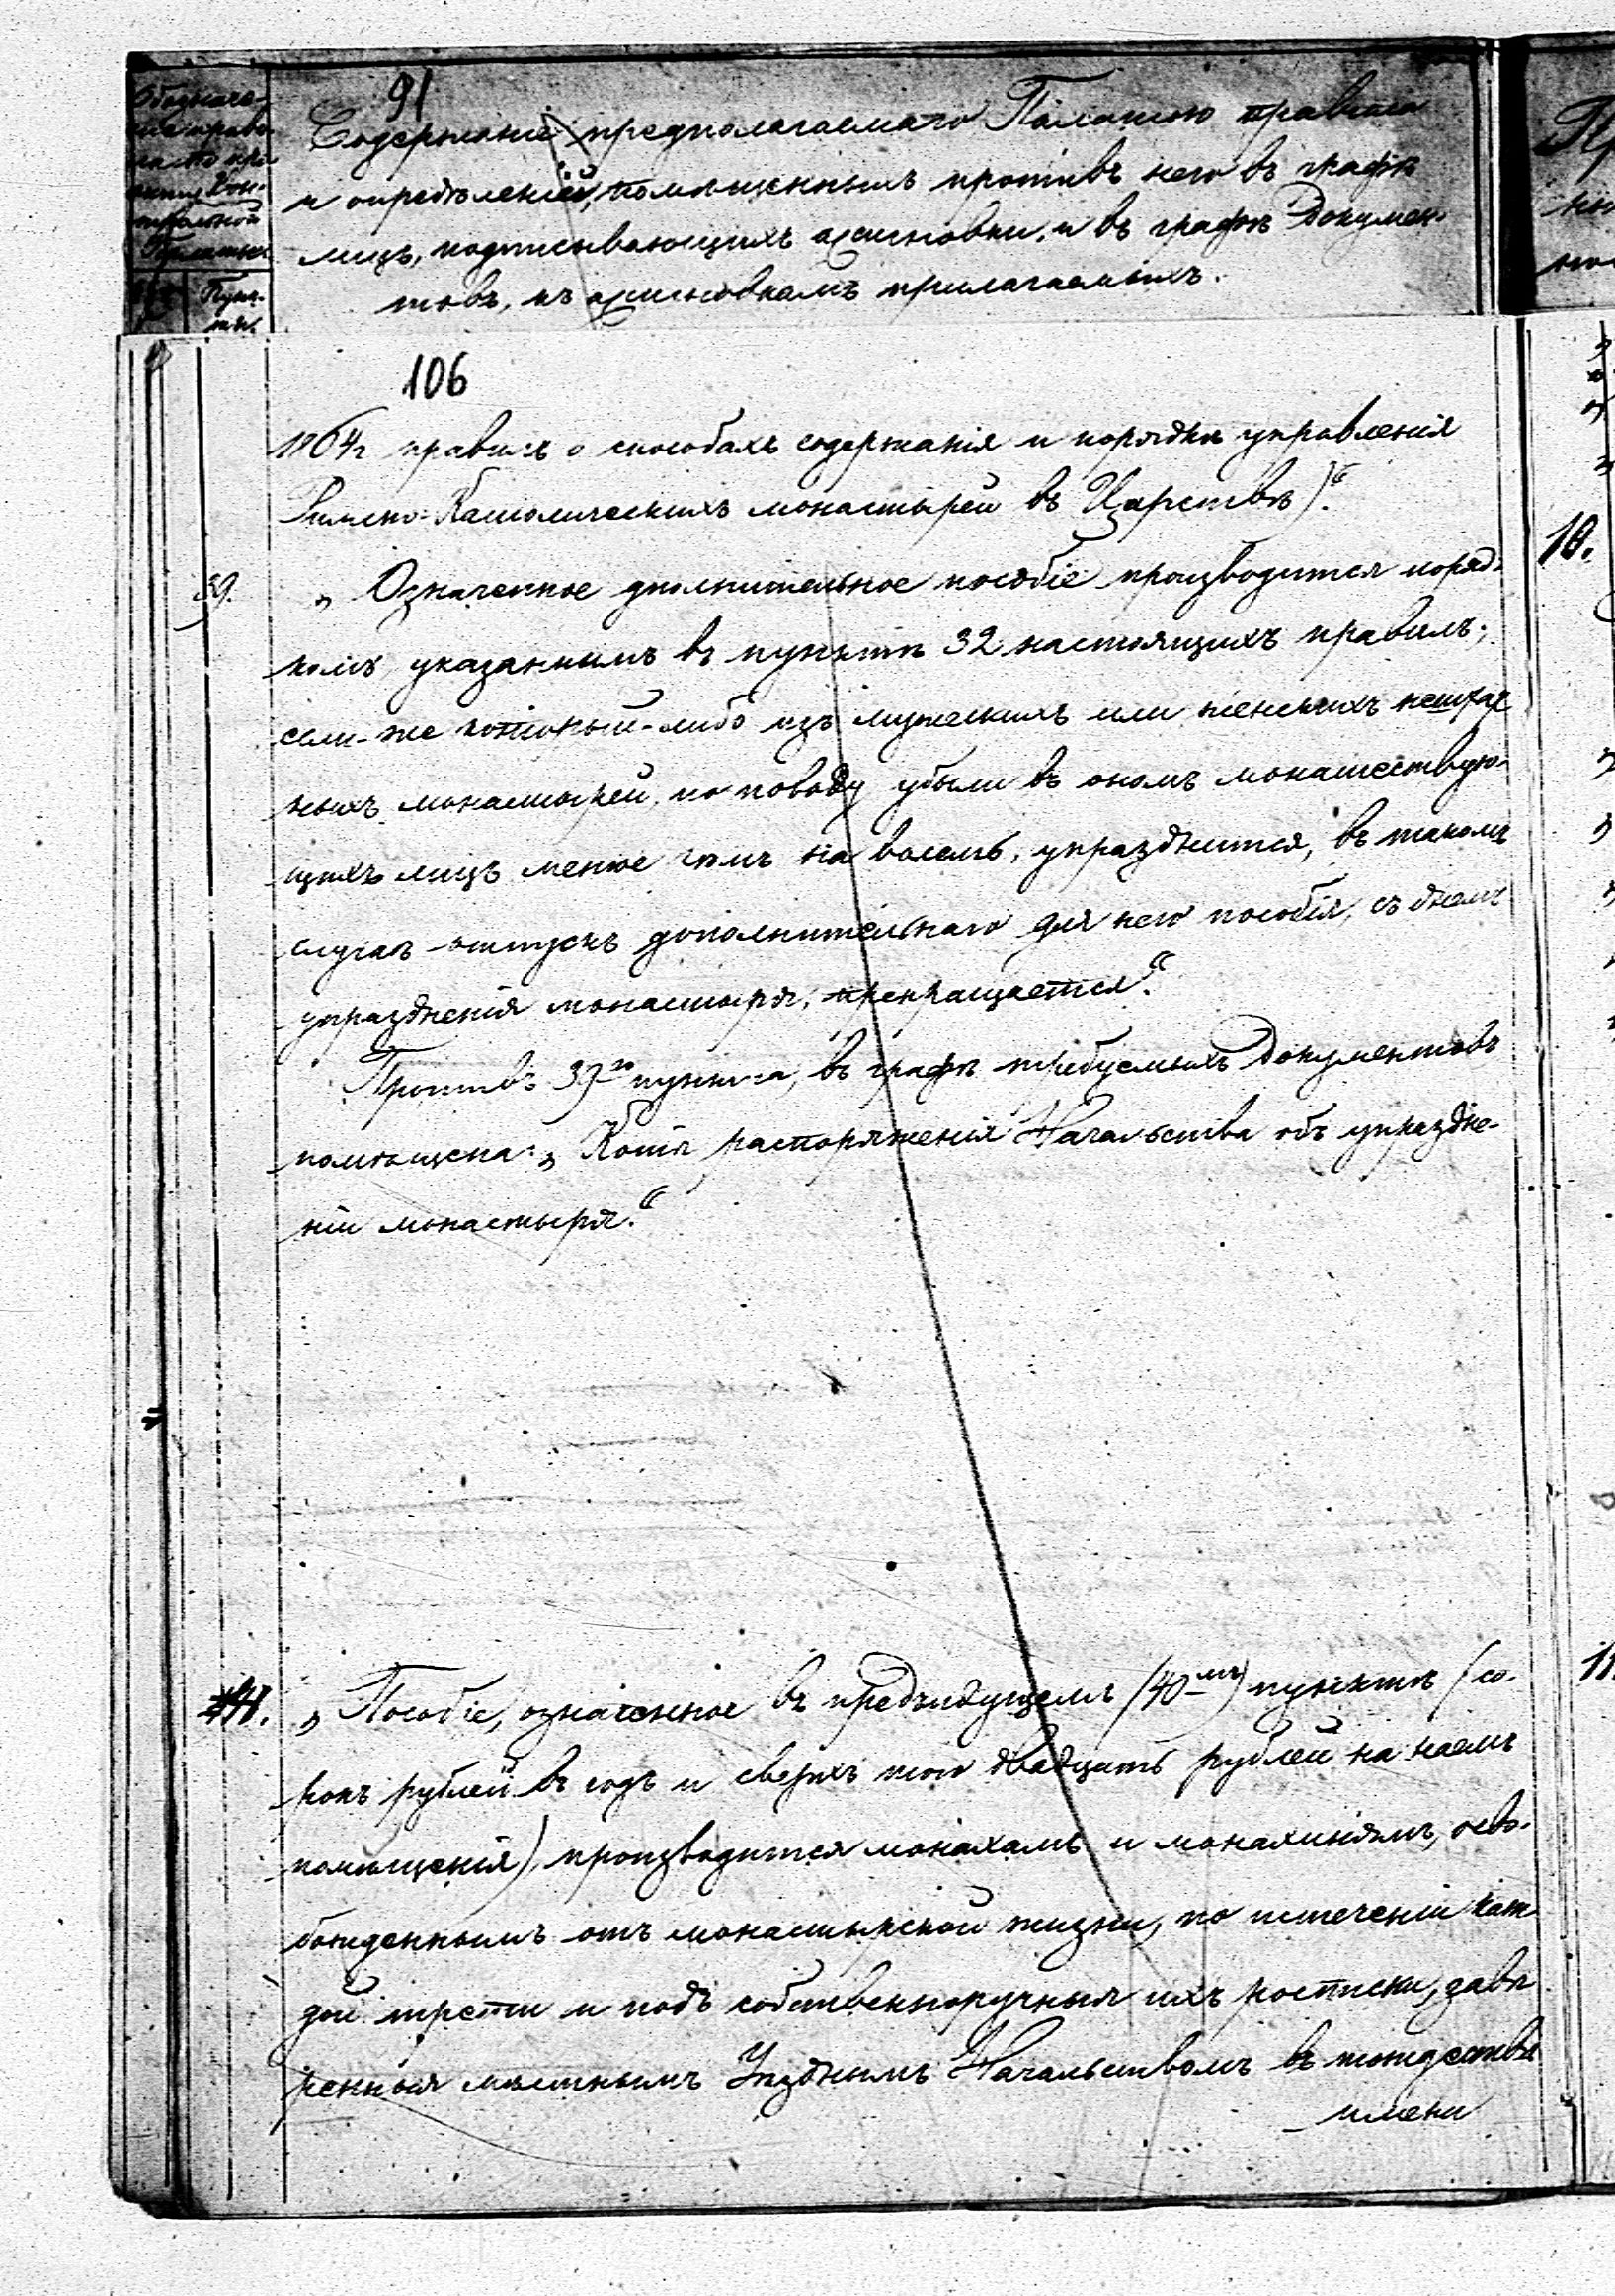 91
Обозначе-
ніе правилъ
по про-
екту Кон-
трольной
Палаты.
Пунк-
ты.
Содержаніе предполагаемаго Палатою правила
и опредѣленій, помѣщенныхъ противъ него въ графѣ
лицъ, подписывающихъ ассигновки, и въ графѣ Докумен-
товъ, къ ассигновкамъ прилагаемыхъ.
106
1864 г правилъ о способахъ содержанія и порядкѣ управленія
Римско-Католическихъ монастырей въ Царствѣ).“
39.
„Означенное дполнительное пособіе производится поряд-
комъ, указаннымъ въ пунктѣ 32 настоящихъ правилъ;
если-же который-либо изъ мужескихъ или женскихъ нештат
ныхъ монастырей, по поводу убыли въ ономъ монашествую-
щихъ лицъ менѣе чѣмъ на восемь, упразднится, въ такомъ
случаѣ отпускъ дополнительнаго для него пособія, съ днемъ
упраздненія монастыря, прекращается.“
Противъ 39го пункта, въ графѣ требуемыхъ Документовъ
помѣщена: „Копія распоряженія Начальства объ упраздне-
ніи монастыря.“
41.
„Пособіе, означенное въ предъидущемъ (40мъ) пунктѣ (со-
рокъ рублей въ годъ и сверхъ того двадцать рублей на наемъ
помѣщенія), производится монахамъ и монахинямъ, осво-
божденнымъ отъ монастырской жизни, по истеченіи каж
дой трети и подъ собственноручныя ихъ росписки, завѣ
ренныя мѣстнымъ Уѣзднымъ Начальствомъ въ тождествѣ
имени
10.
11.